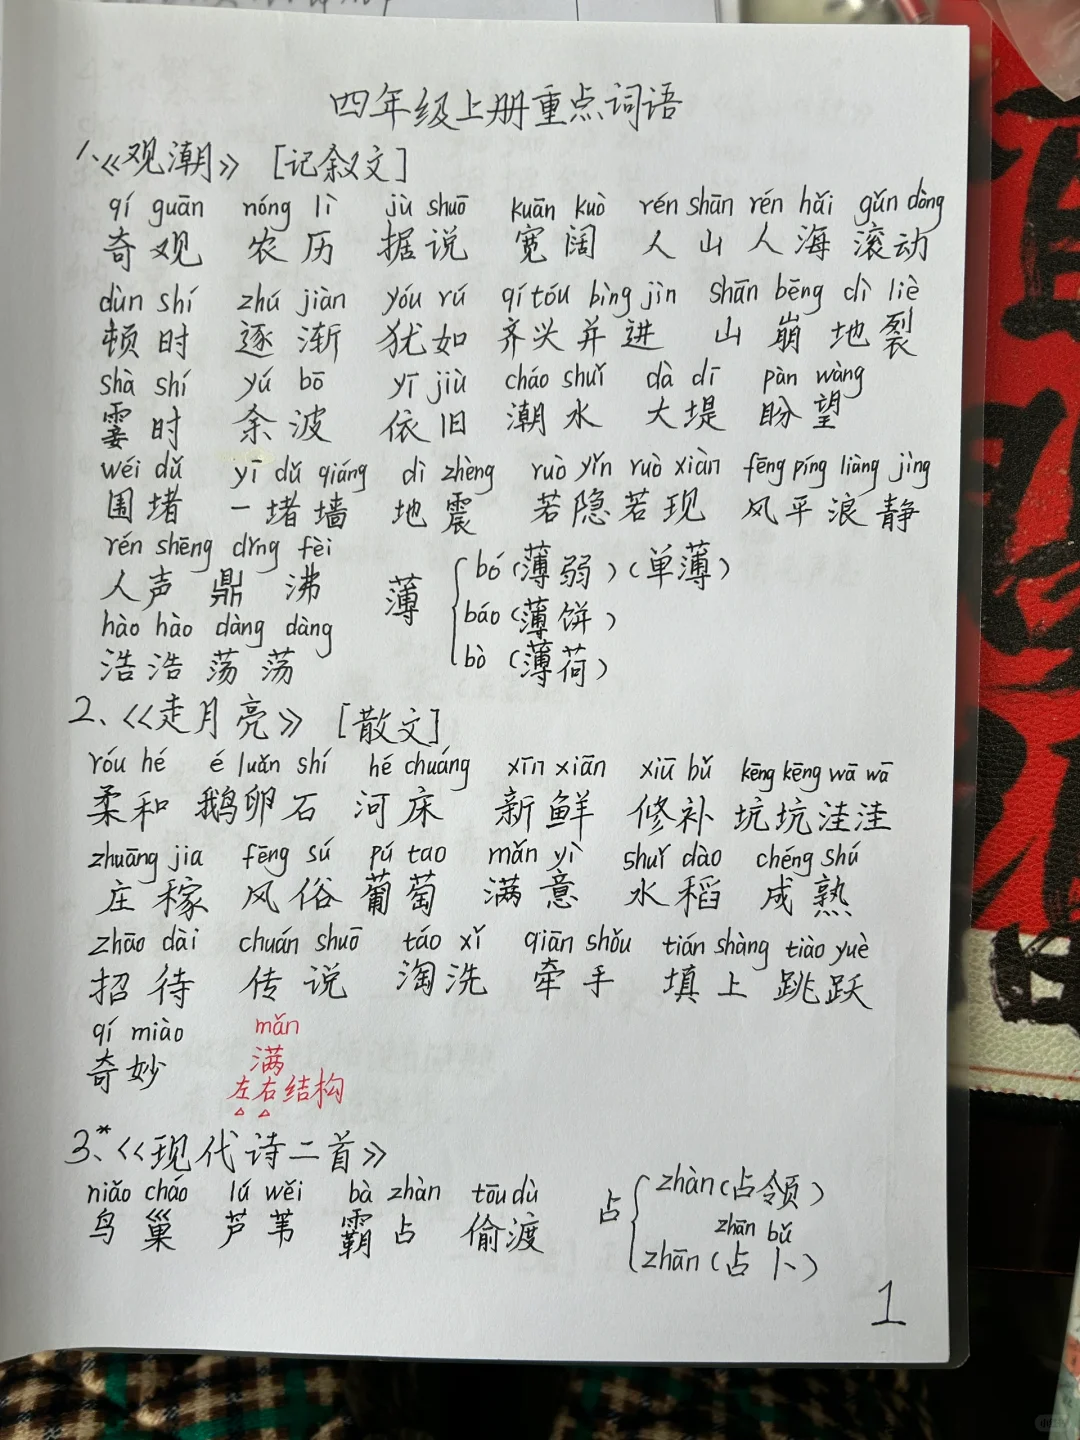 四年级上册重点词语
1、《观潮》 [记叙文]
qí guān nóng lì jù shuō kuān kuò rén shān rén hǎi gǔn dòng
奇观 农历 据说 宽阔 人山人海 滚动
dùn shí zhú jiàn yóu rú qí tóu bìng jìn shān bēng dì liè
顿时 逐渐 犹如 齐头并进 山崩地裂
shà shí yú bō yī jiù cháo shuǐ dà dī pàn wàng
霎时 余波 依旧 潮水 大堤 盼望
wéi dǔ yī dǔ qiáng dì zhèng ruò yǐn ruò xiàn fēng píng liàng jìng
围堵 一堵墙 地震 若隐若现 风平浪静
rén shēng dǐng fèi
人声鼎沸
hào hào dàng dàng
浩浩荡荡
薄 bó (薄弱) (单薄)
báo (薄饼)
bò (薄荷)
2、《走月亮》 [散文]
róu hé é luǎn shí hé chuáng xīn xiān xiū bǔ kēng kēng wā wā
柔和 鹅卵石 河床 新鲜 修补 坑坑洼洼
zhuāng jia fēng sú pú tao mǎn yì shuǐ dào chéng shú
庄稼 风俗 葡萄 满意 水稻 成熟
zhāo dài chuán shuō táo xǐ qiān shǒu tián shàng tiào yuè
招待 传说 淘洗 牵手 填上 跳跃
qí miào mǎn
奇妙 满
左右结构
3、*《现代诗二首》
niǎo cháo lú wěi bà zhàn tōu dù
鸟巢 芦苇 霸占 偷渡
占 zhàn (占领)
zhān bǔ
zhān (占卜)
1